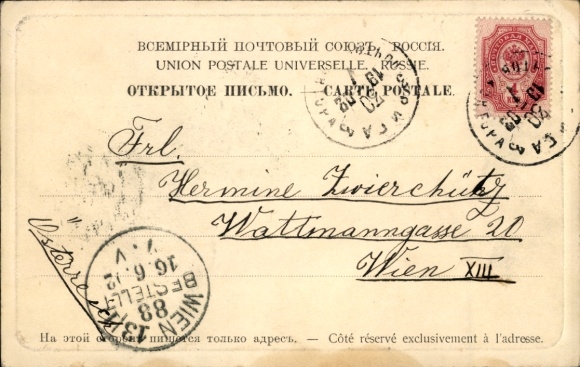 ВСЕМІРНЫЙ ПОЧТОВЫЙ СОЮЗЪ. РОССІЯ.
UNION POSTALE UNIVERSELLE. RUSSIE.
ОТКРЫТОЕ ПИСЬМО. — CARTE POSTALE.
Frl.
Hermine Zwierschütz
Wattmanngasse 20
Wien XIII
Österreich
WIEN
88
BESTELLT
16.6.02
На этой сторонѣ пишется только адресъ. — Côté réservé exclusivement à l'adresse.